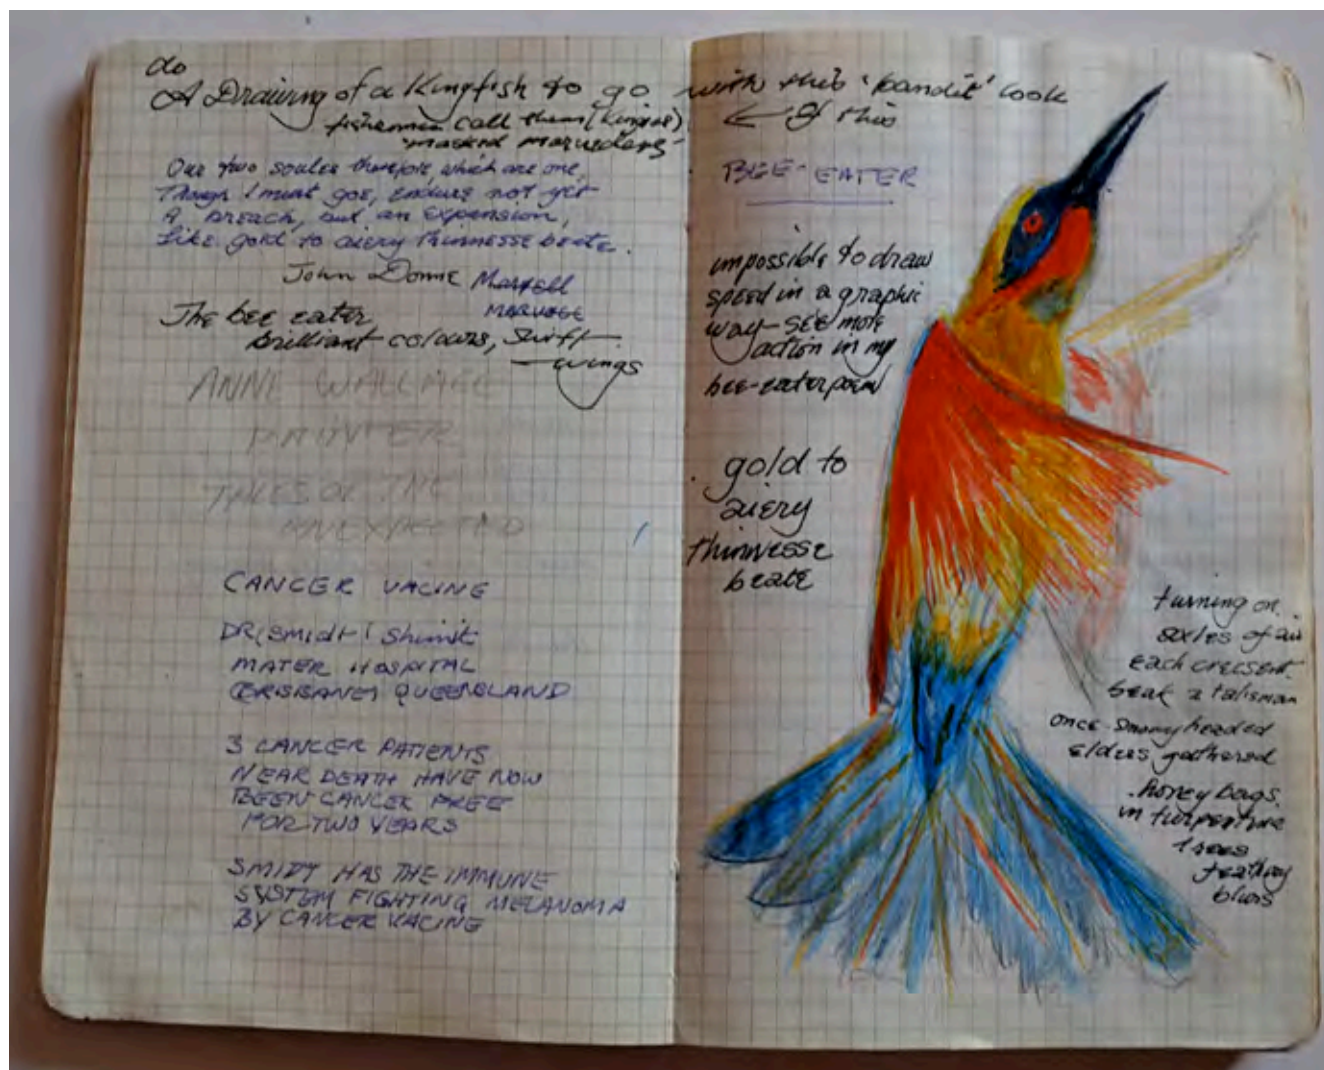 do
A Drawing of a Kingfish to go with this 'bandit' look
fishermen call them (Kingies) ← of this
'masked marauders'
Our two soules therefore, which are one,
Though I must goe, endure not yet
A breach, but an expansion,
Like gold to aiery thinnesse beate.
John Donne Marvell
MARVELL
The bee eater
brilliant colours, swift
wings
ANNE WALLACE
PAINTER
TALES OF THE
UNEXPECTED
CANCER VACINE
DR(smidt) Shimit
MATER HOSPITAL
BRISBANE, QUEENSLAND
3 CANCER PATIENTS
NEAR DEATH HAVE NOW
BEEN CANCER FREE
FOR TWO YEARS
SMIDT HAS THE IMMUNE
SYSTEM FIGHTING MELANOMA
BY CANCER VACINE
BEE-EATER
impossible to draw
speed in a graphic
way—SEE more
action in my
bee-eater poem
gold to
aiery
thinnesse
beate
turning on
axles of air
each crescent
beak a talisman
once snowy headed
elders gathered
honey bags
in turpentine
trees
feathery
blurs